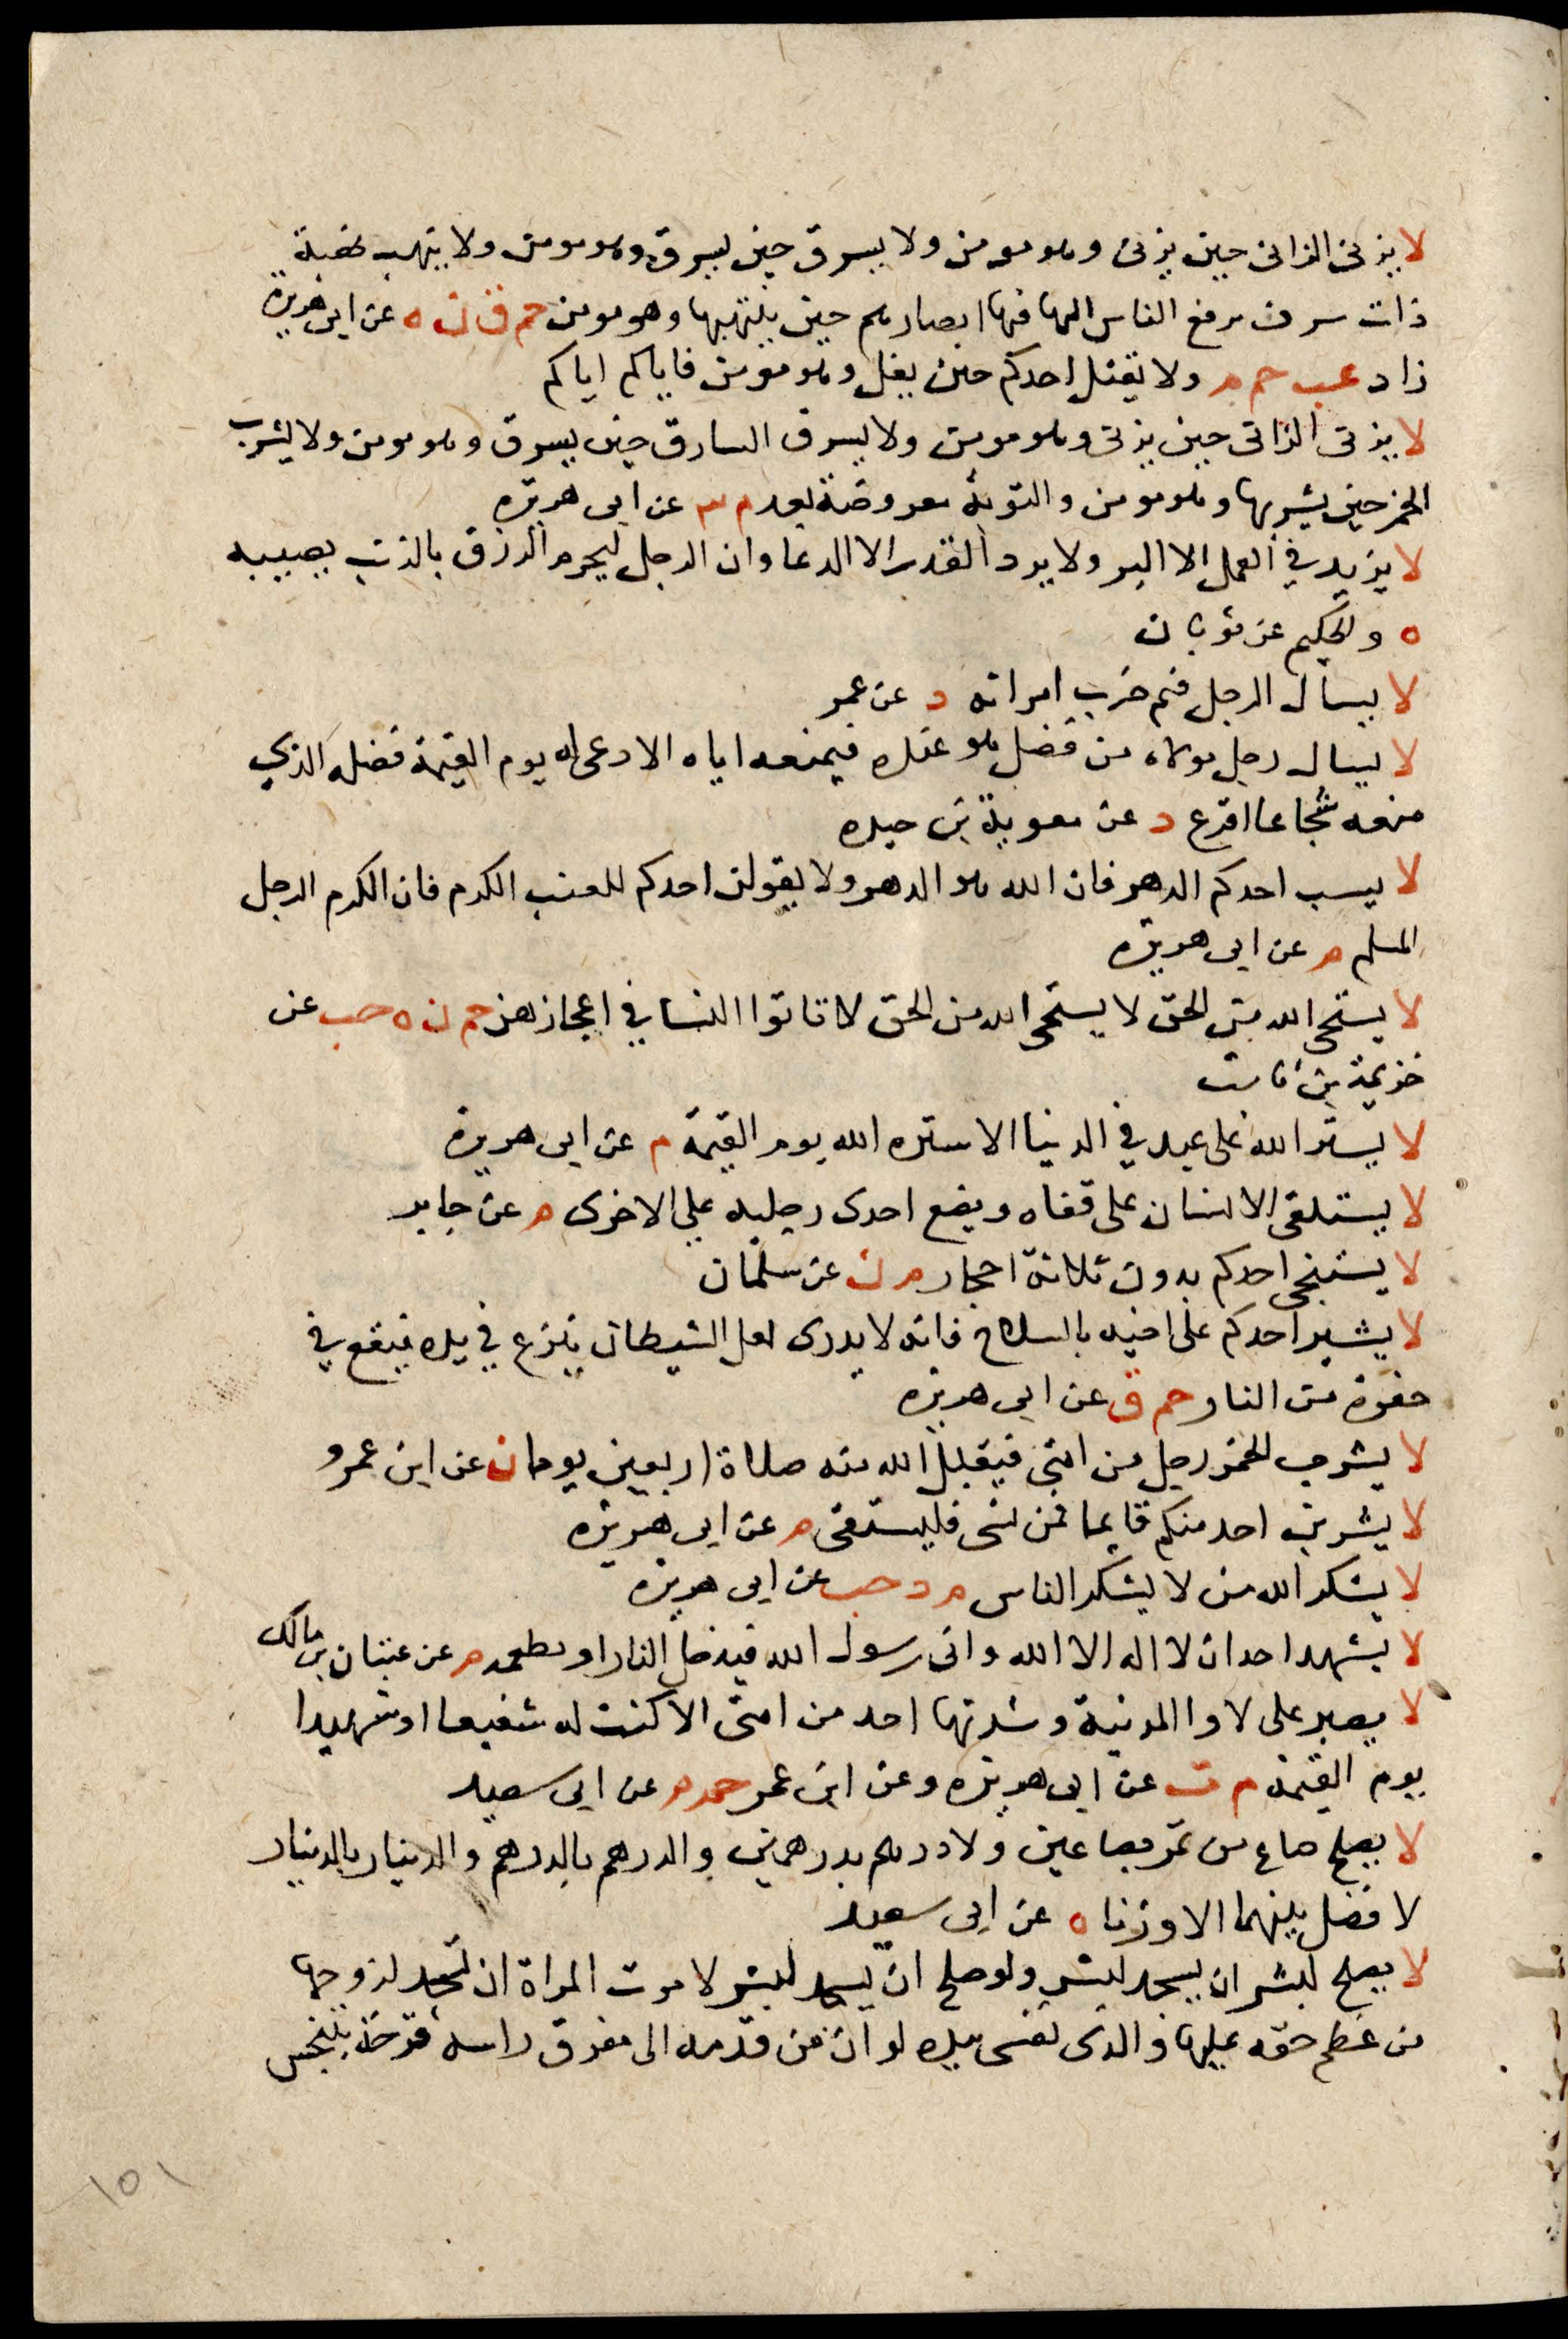 لا يزنى الزانى حين يزنى وهو مومن ولا يسرق حين يسرق وهو مومن ولا ينتهب نهبة
ذات سرف يرفع الناس اليها فيها ابصارهم حين ينتهبها وهو مومن حم ق ن ه عن ابى هريرة
زاد عب حم م ولا يغتل احدكم حين يغل وهو مومن فاياكم اياكم
لا يزنى الزانى حين يزنى وهو مومن ولا يسرق السارق حين يسرق وهو مومن ولا يشرب
الخمر حين يشربها وهو مومن والتوبة معروضة بعد م عن ابى هريرة
لا يزيد في العمل الا البر ولا يرد القدر الا الدعا وان الرجل ليحرم الرزق بالذنب يصيبه
ه والحكيم عن ثوبان
لا يسال الرجل فيم ضرب امراته د عن عمر
لا يسال رجل مولاه من فضل هو عنده فيمنعه اياه الا دعى له يوم القيمة فضله الذي
منعه شجاعا اقرع د عن معوية بن حيده
لا يسب احدكم الدهر فان الله هو الدهر ولا يقولن احدكم للعنب الكرم فان الكرم الرجل
المسلم م عن ابى هريره
لا يستحى الله من الحق لا يستحى الله من الحق لا تاتوا النسا في اعجازهن حم ن ه حب عن
خزيمة بن ثابت
لا يستر الله على عبد في الدنيا الا ستره الله يوم القيمة م عن ابى هريرة
لا يستلقى الانسان على قفاه ويضع احدى رجليه على الاخرى م عن جابر
لا يستنجى احدكم بدون ثلاثة احجار م ن عن سلمان
لا يشير احدكم على اخيه بالسلاح فانه لا يدرى لعل الشيطان ينزع في يده فيقع في
حفرة من النار حم ق عن ابى هريره
لا يشرب الخمر رجل من امتى فيقبل الله منه صلاة اربعين يوما ن عن ابن عمرو
لا يشربن احد منكم قايما فمن نسى فليستقى م عن ابى هريره
لا يشكر الله من لا يشكر الناس م د حب عن ابى هريره
لا يشهد احد ان لا اله الا الله وانى رسول الله فيدخل النار او تطعمه م عن عتبان بن مالك
لا يصبر على لاوا المدينة وشدتها احد من امتى الا كنت له شفيعا او شهيدا
يوم القيمة م ت عن ابى هريره وعن ابن عمر حم م عن ابى سعيد
لا يصلح صاع من تمر بصاعين ولا درهم بدرهمين والدرهم بالدرهم والدينار بالدينار
لا فضل بينهما الا وزنا ه عن ابى سعيد
لا يصلح لبشر ان يسجد لبشر ولو صلح ان يسجد لبشر لامرت المراة ان تسجد لزوجها
من عظم حقه عليها والذى نفسى بيده لو ان من قدمه الى مفرق راسه قرحة تنبجس
١٥١